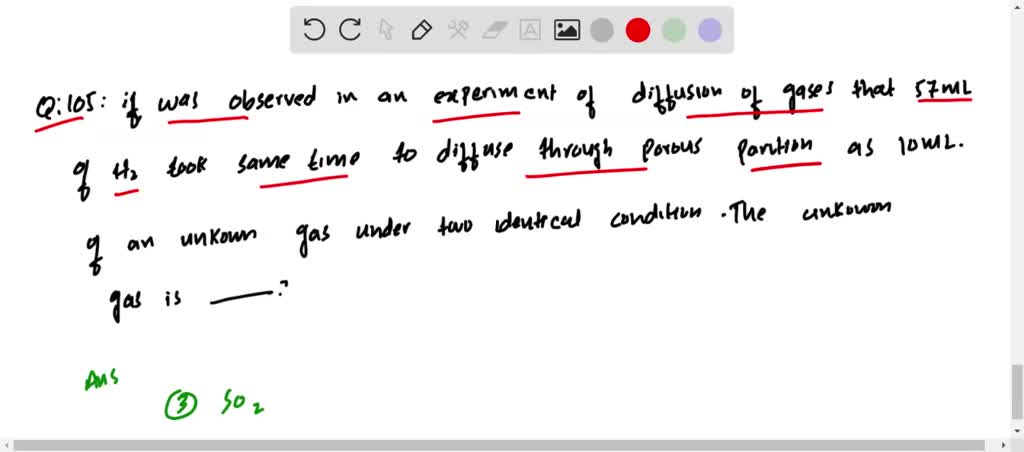 Q:105: if was observed in an experiment of diffusion of gases that 57mL
of H2 took same time to diffuse through porous partition as 10mL.
of an unkown gas under two identical condition. The unkown
gas is ——?
Ans
③ SO2